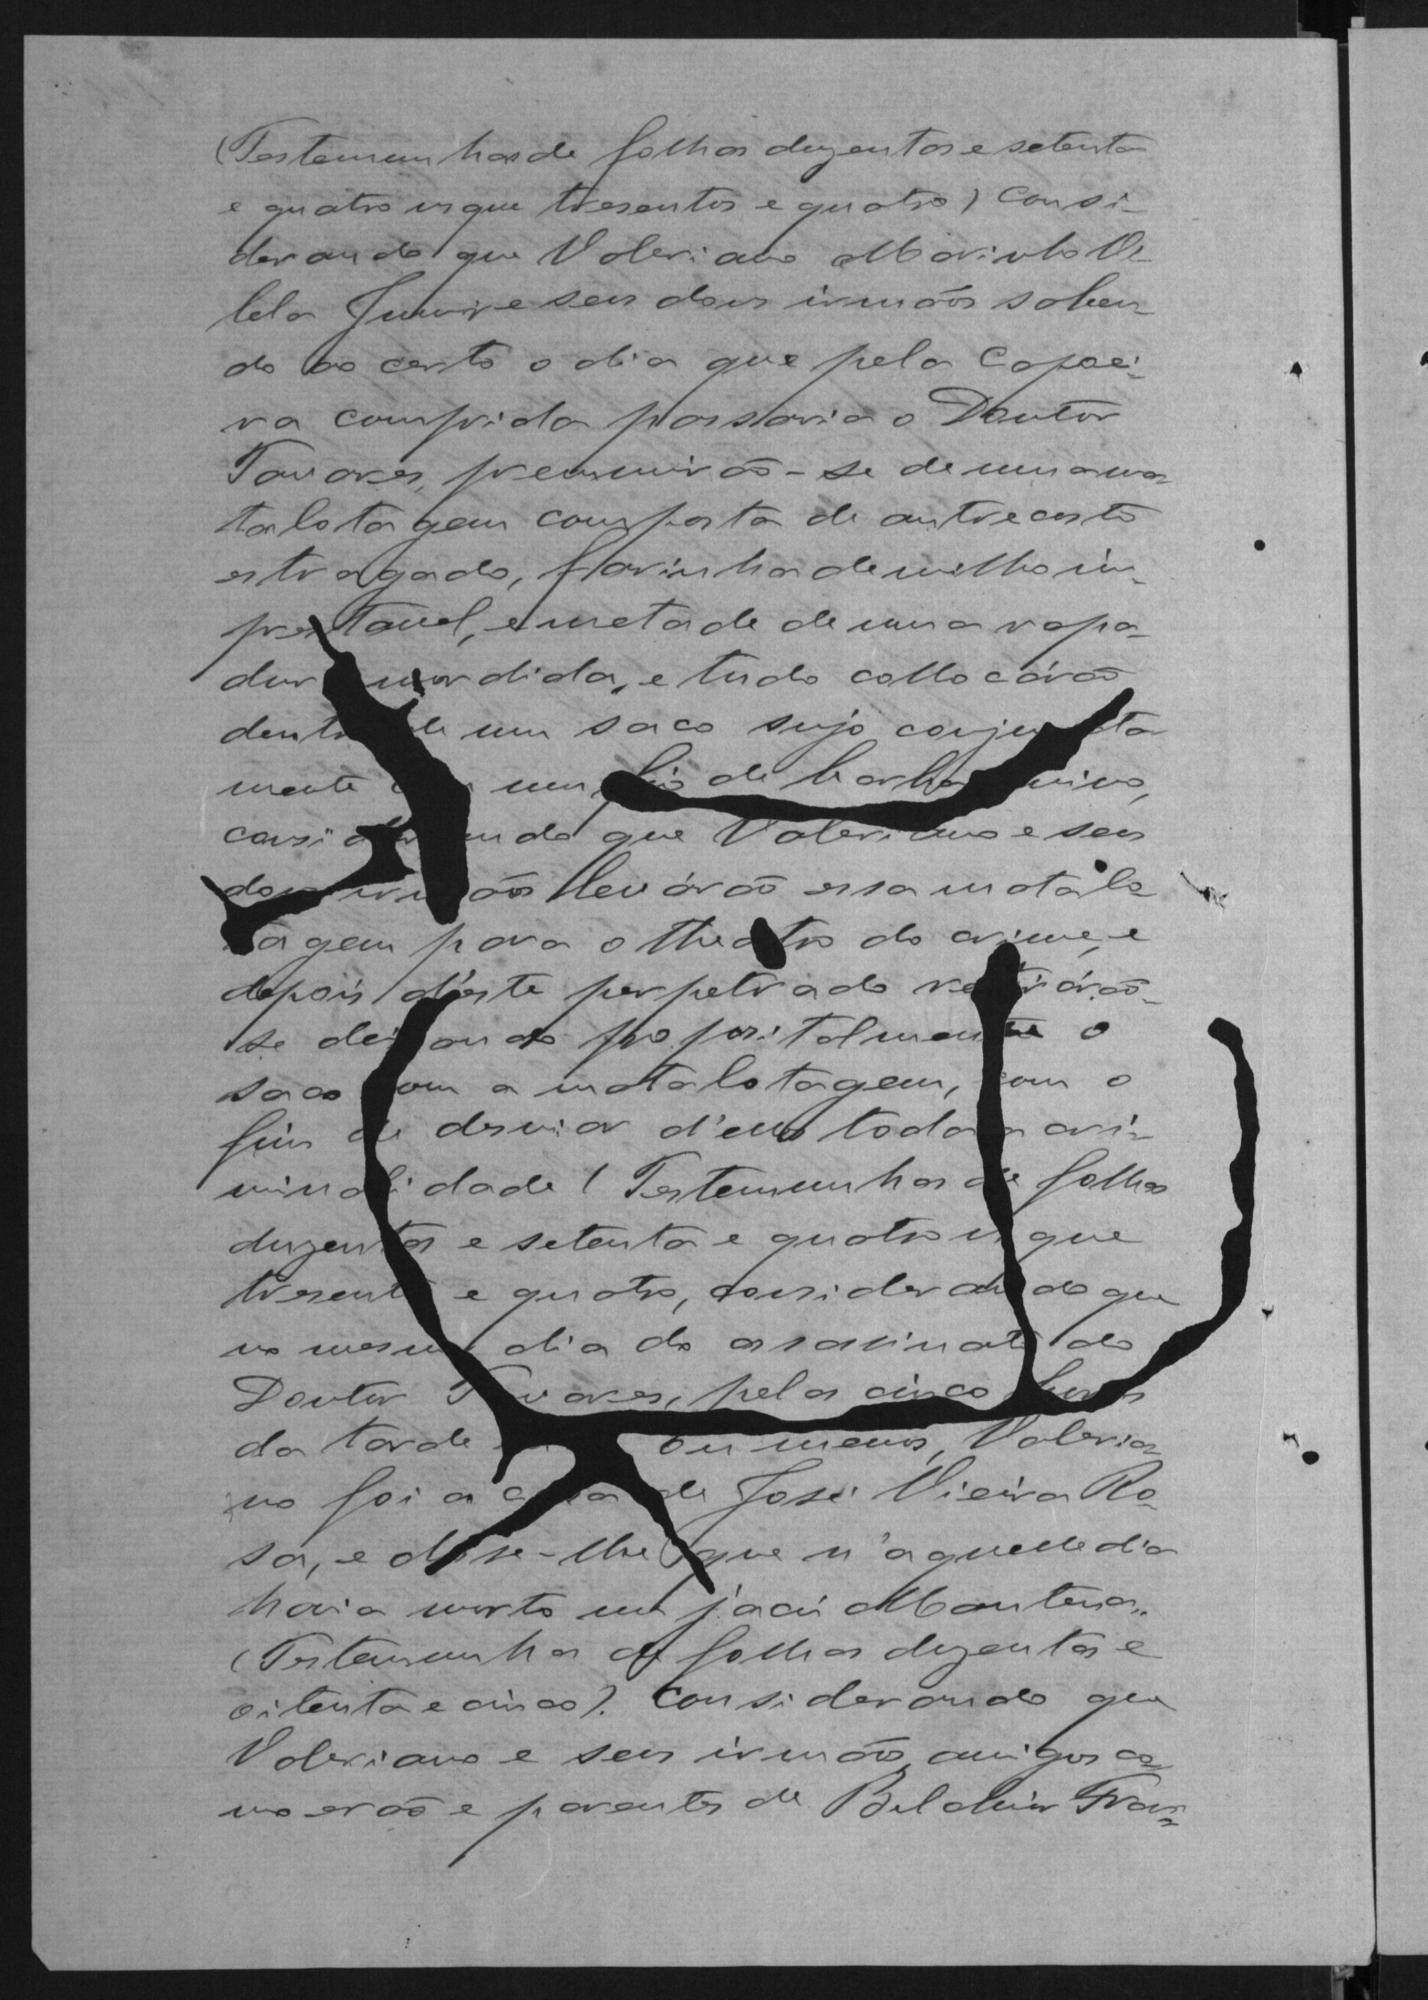 (Testemunhas de folhas duzentos e setenta
e quatro usque tresentos e quatro) Consi-
derando que Valeriano Marinho Vi-
lela Junior e seus dous irmãos saben-
do ao certo o dia que pela Capoei-
ra comprida passaria o Doutor
Tavares, premunirão-se de uma ma-
talotagem composta de antrecosto
estragado, farinha de milho im-
prestavel, e metade de uma rapa-
dura mordida, e tudo collocárão
dentro de um saco sujo conjuncta
mente com um fio de barba
considerando que Valeriano e seus
dous irmãos levárão essa matalo
tagem para o theatro do crime, e
depois d'este perpetrado retirárão-
se deixando propositalmente o
saco com a matalotagem, com o
fim de desviar d'elles toda a cri-
minalidade (Testemunhas de folhas
duzentos e setenta e quatro usque
tresentos e quatro, considerando que
no mesmo dia do assassinato do
Doutor Tavares, pelas cinco horas
da tarde ou menos, Valeria
no foi a casa de José Vieira Ro-
sa, e disse-lhe que n'aquelle dia
havia morto um jacú
(Testemunha de folhas duzentos e
oitenta e cinco). Considerando que
Valeriano e seus irmãos, amigos co-
mo erão e parentes de Belchior Fran-